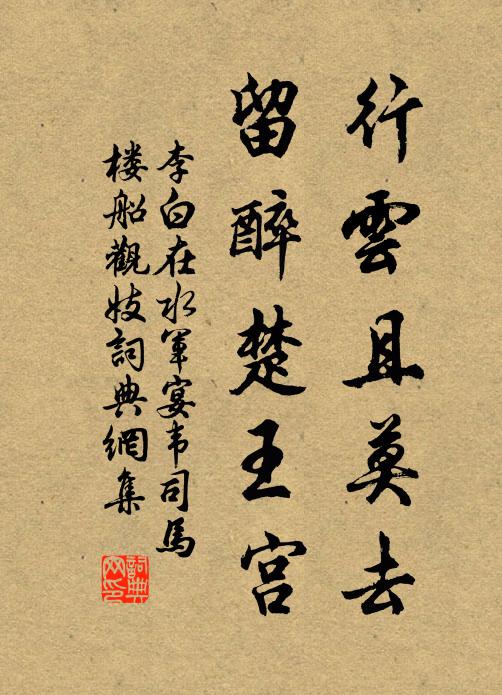 行雲且莫去
留醉楚王宫
李白在水軍宴韦司馬
楼船觀妓詞典網集
詞典
网印